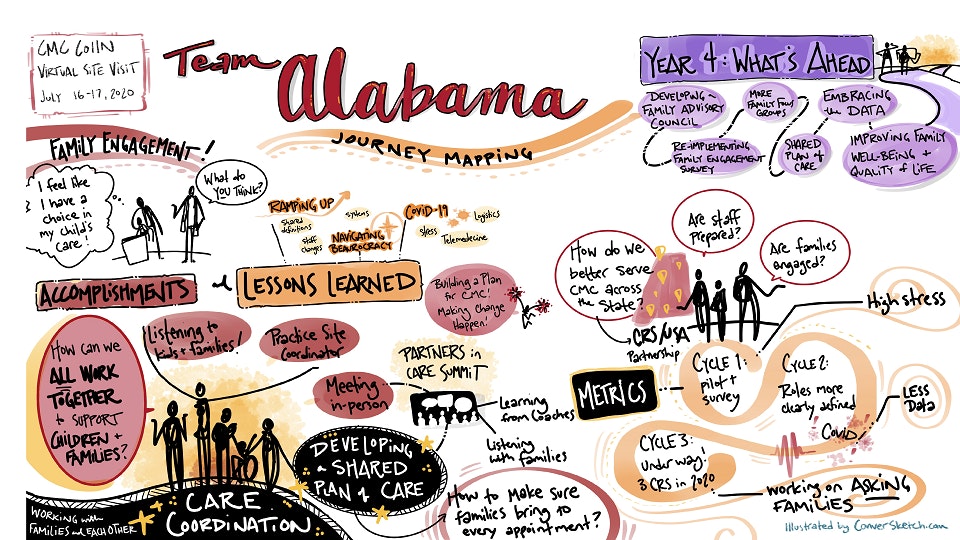 CMC CoIIN
VIRTUAL SITE VISIT
JULY 16-17, 2020
Team Alabama
JOURNEY MAPPING
YEAR 4: WHAT'S AHEAD
DEVELOPING a
FAMILY ADVISORY
COUNCIL
MORE
FAMILY FOCUS
GROUPS
EMBRACING
the DATA
RE-IMPLEMENTING
FAMILY ENGAGEMENT
SURVEY
SHARED
PLAN of
CARE
IMPROVING FAMILY
WELL-BEING +
QUALITY of LIFE
FAMILY ENGAGEMENT!
I feel like
I have a
choice in
my child's
care!
What do
YOU THINK?
RAMPING UP
Shared
definitions
Staff
changes
Systems
NAVIGATING
BEAUROCRACY
COVID-19
Stess
Logistics
Telemedecine
ACCOMPLISHMENTS
&
LESSONS LEARNED
Building a Plan
for CMC!
Making Change
Happen!
How do we
better serve
CMC across
the State?
Are staff
prepared?
Are families
engaged?
CRS/USA
Partnership
High stress
How can we
ALL WORK
TOGETHER
to SUPPORT
CHILDREN +
FAMILIES?
Listening to
kids + families!
Practice Site
Coordinator
Meeting
in-person
PARTNERS in
CARE SUMMIT
Learning
from Coaches
Listening
with families
METRICS
CYCLE 1:
pilot +
survey
CYCLE 2:
Roles more
clearly defined
Covid
LESS
Data
CYCLE 3:
Under way!
3 CRS in 2020
Working on ASKING
FAMILIES
DEVELOPING
a SHARED
PLAN of CARE
CARE
COORDINATION
WORKING with
FAMILIES and EACH OTHER
How to make sure
families bring to
every appointment?
Illustrated by ConverSketch.com